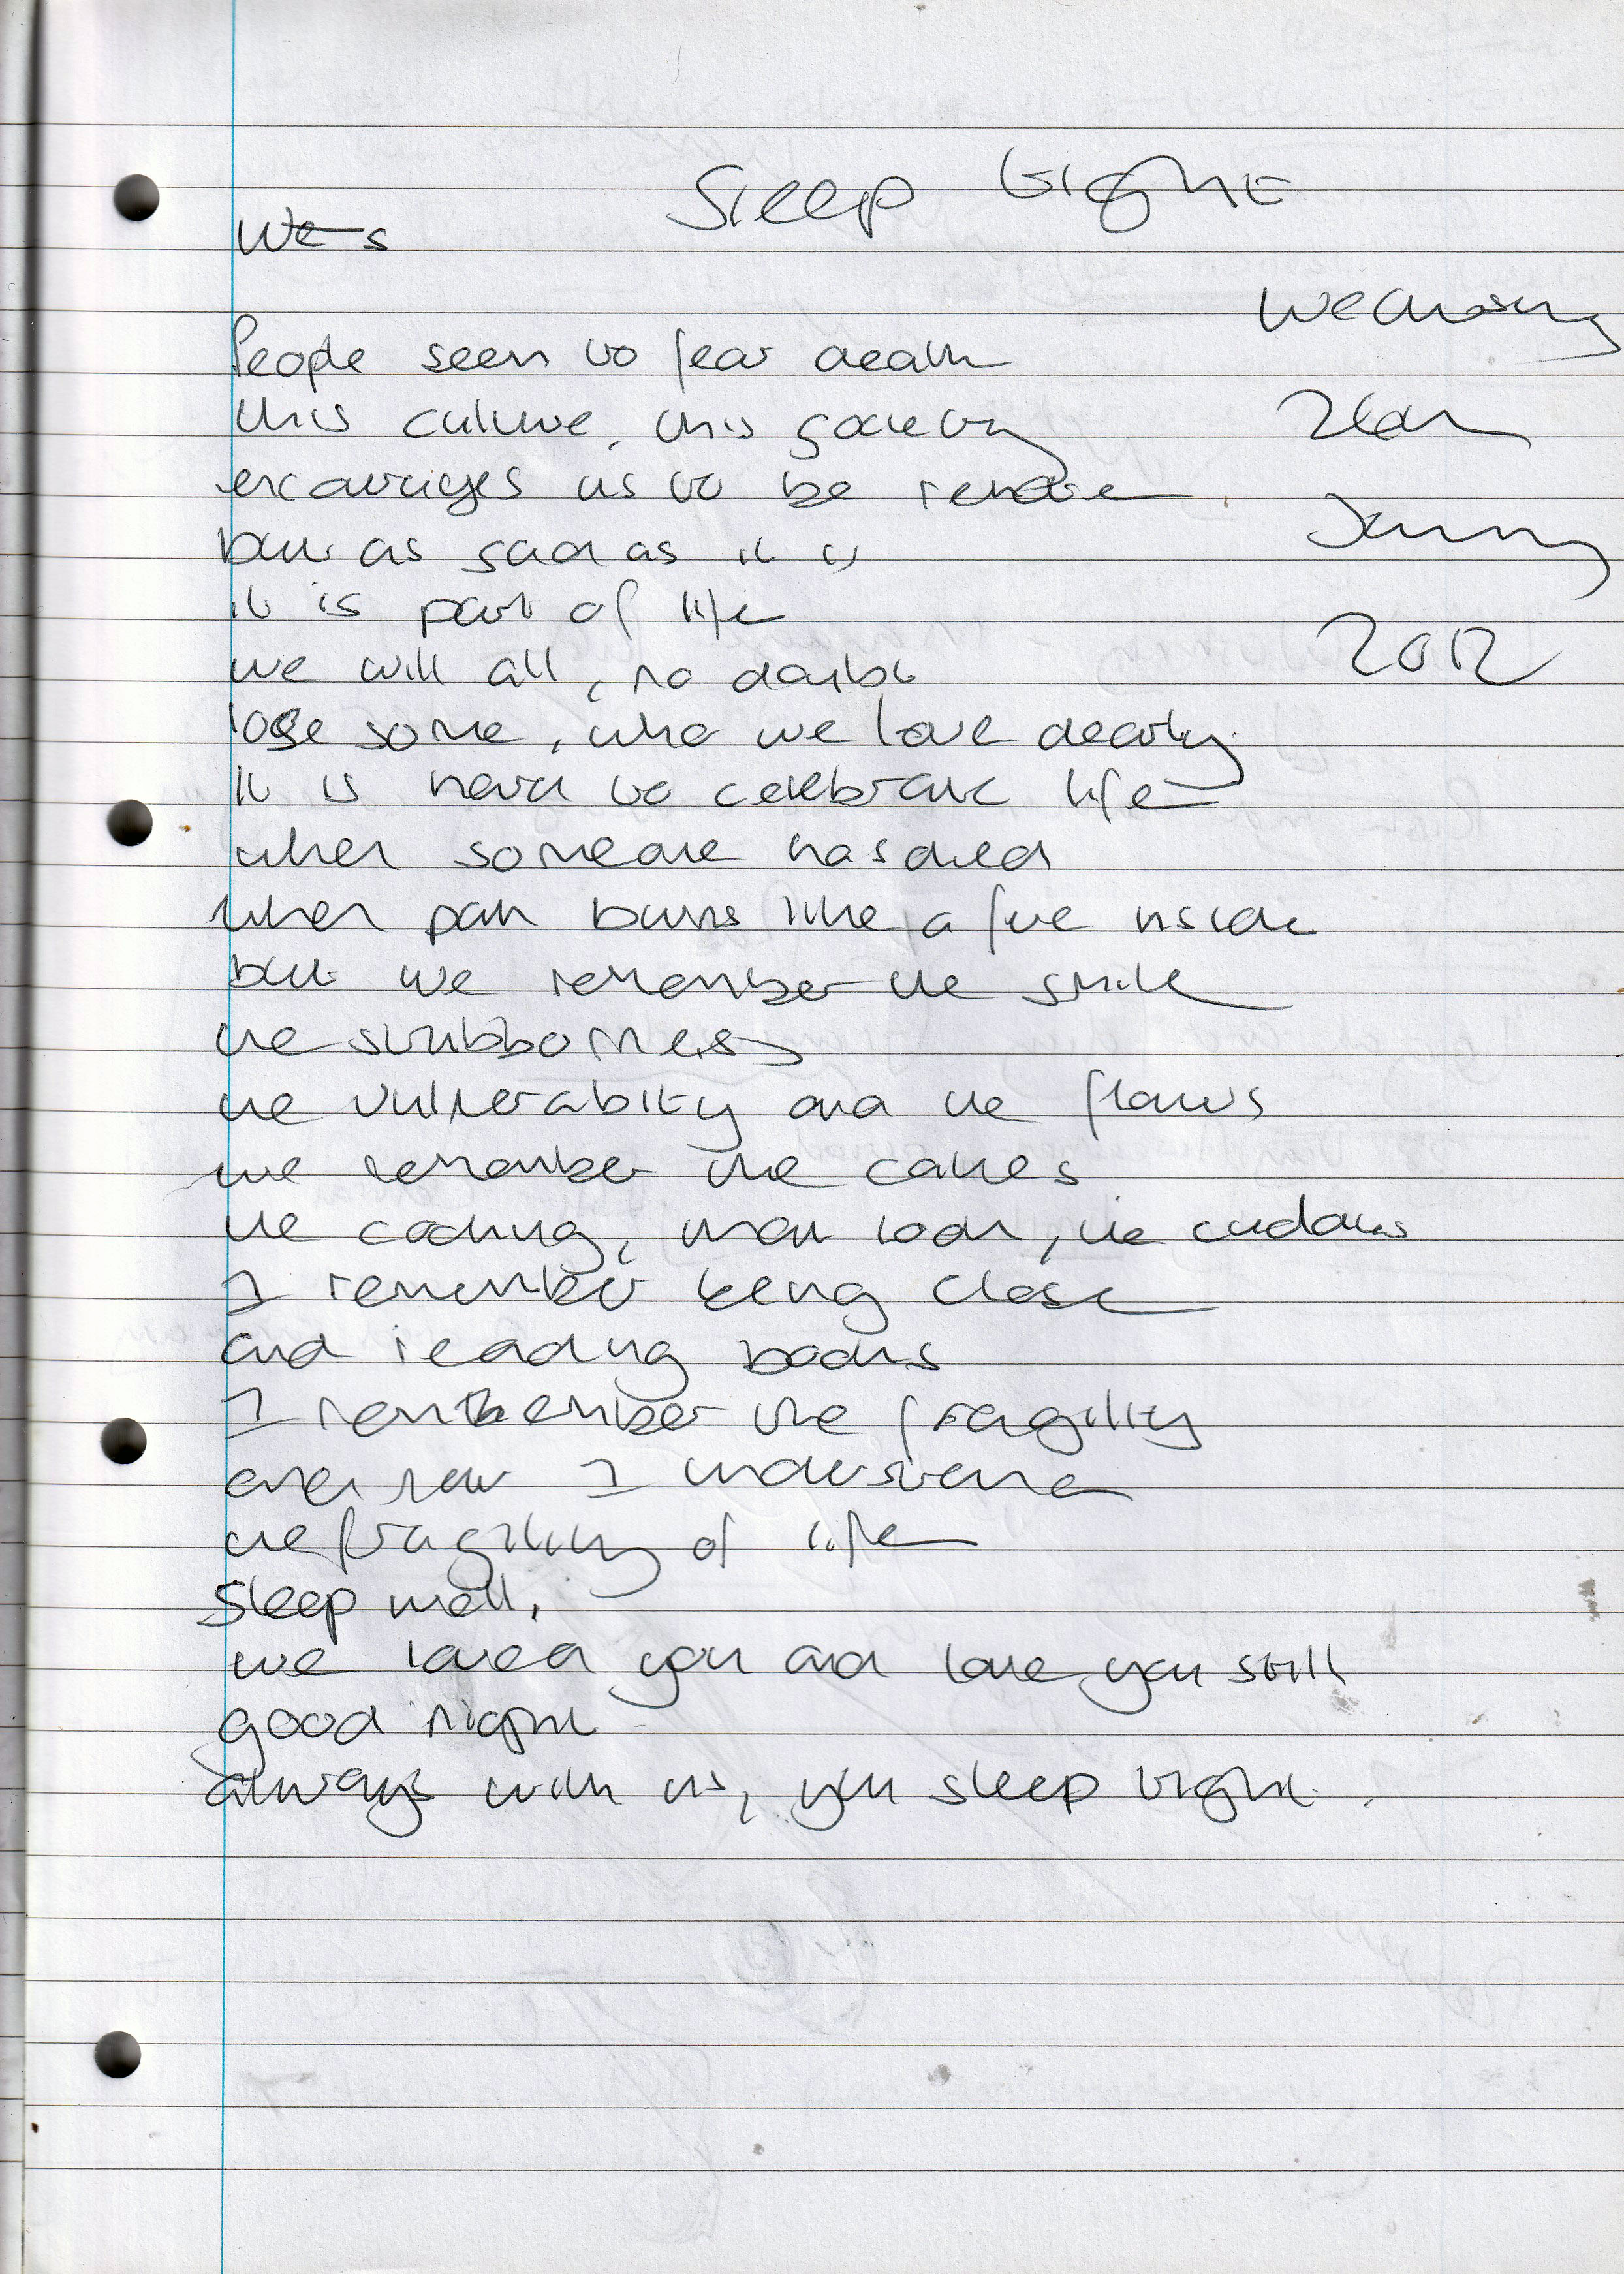 Sleep tight
We s
Wednesday
People seem to fear death
this culture, this society
2012
but as sad as it is
it is part of life
we will all, no doubt
lose some, who we love dearly
It is hard to celebrate life
when someone has died
when pain burns like a fire inside
but we remember the smile
the stubborness
the vulnerability and the flaws
we remember the cakes
the cooking, that look, the cuddles
I remember being close
and reading books
I remember the fragility
even now I understand
the fragility of life
Sleep well,
we loved you and love you still
good night
always with us, you sleep tight.